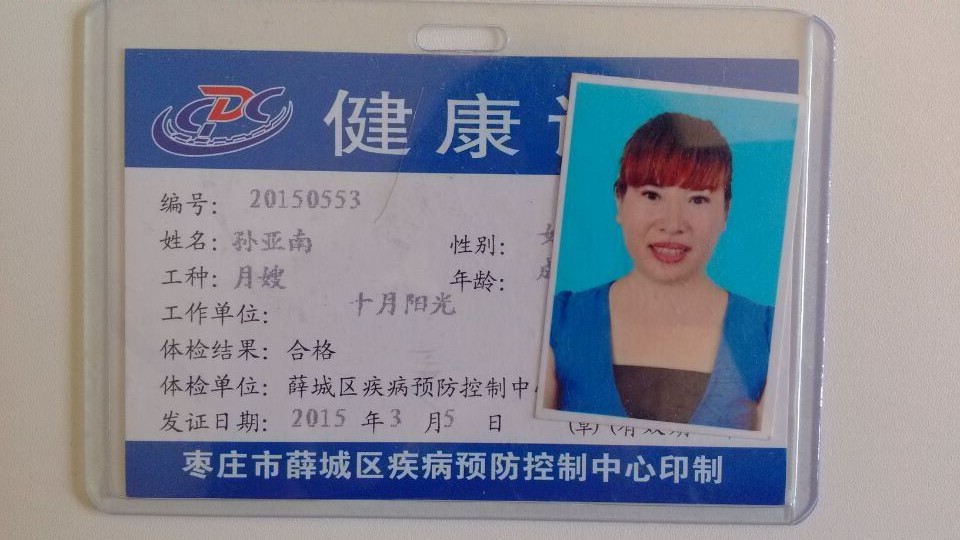 CDC
健康
编号： 20150553
姓名：孙亚南 性别：
工种：月嫂 年龄：
工作单位： 十月阳光
体检结果：合格
体检单位：薛城区疾病预防控制中
发证日期： 2015 年 3 月 5 日
枣庄市薛城区疾病预防控制中心印制